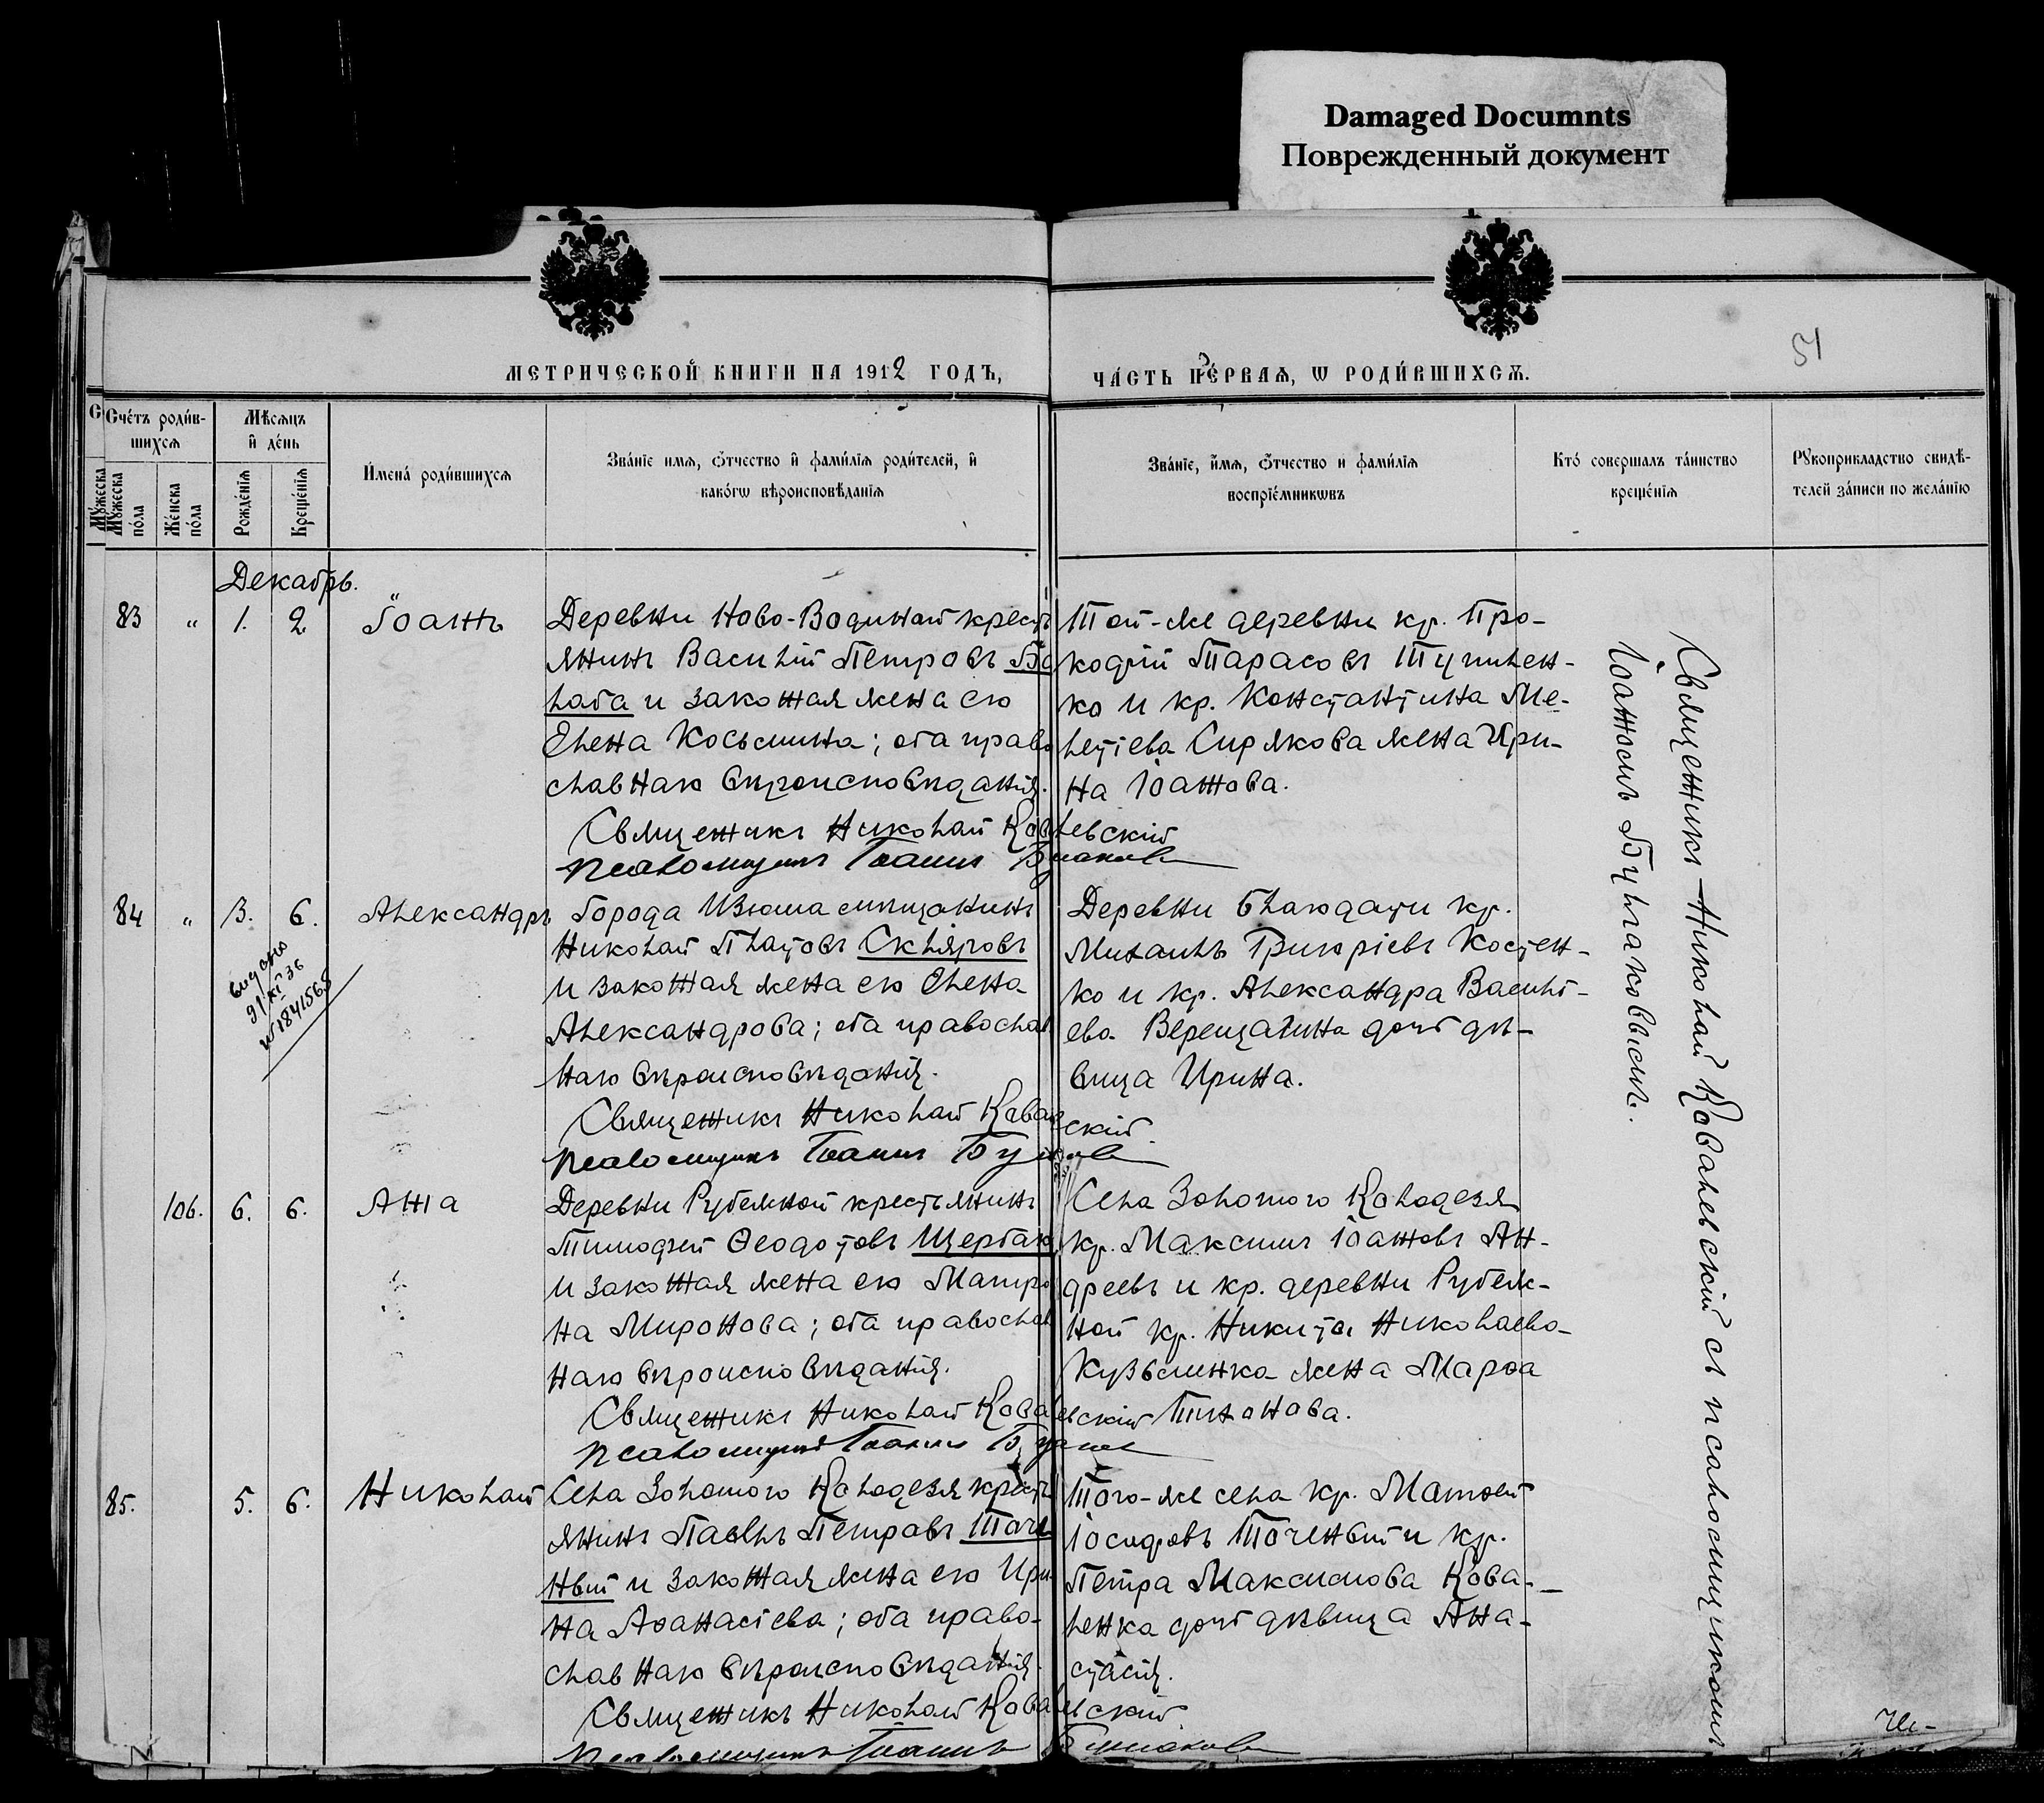 Damaged Documnts
Поврежденный документ
51
МЕТРИЧЕСКОЙ КНИГИ НА 1912 ГОДЪ,
ЧА́СТЬ ПЕ́РВАѦ, Ѡ РОДИ́ВШИХСѦ.
Сче́тъ роди́в-
шихсѧ
Мѣсѧцъ
и де́нь
Имена́ роди́вшихсѧ
Зва́нїе имѧ, ѻ҆́тчество и фами́лїѧ роди́телей, и
како́гѡ вѣроисповѣ́данїѧ
Зва́нїе, и́мѧ, ѻ҆́тчество и фами́лїѧ
воспрїе́мникѡвъ
Кто́ совершалъ та́инство
креще́нїѧ
Рꙋкоприкладство свидѣ́-
телей за́писи по жела́нїю
Мꙋ́жеска
Мꙋ́жеска
по́ла
Же́нска
по́ла
Рожде́нїѧ
Креще́нїѧ
Декабрь.
83 „ 1. 2. Іоаннъ
Деревни Ново-Водяной кресть
янинъ Василій Петровъ Бо
лаба и законная жена его
Елена Косьмина; оба право
славнаго вѣроисповѣданія.
Священникъ Николай Ковалевскій
псаломщикъ Іоаннъ
Той-же деревни кр. Про-
кофій Тарасовъ Тупилен-
ко и кр. Константина Ме-
летіева Сирякова жена Ири-
на Іоаннова.
84 „ 3. 6. Александръ
видано
21/XI 36
№ 1841565
Города Изюма мѣщанинъ
Николай Платовъ Скляровъ
и законная жена его Елена
Александрова; оба православ
наго вѣроисповѣданія.
Священникъ Николай Ковалевскій.
псаломщикъ Іоаннъ
Деревни Благодати кр.
Михаилъ Григоріевъ Костен-
ко и кр. Александра Василі-
ева Верещагина дочь дѣ-
вица Ирина.
106. 6. 6. Анна
Деревни Рубежной крестьянинъ
Тимофей Ѳеодотовъ Щербак
и законная жена его Матро
на Миронова; оба православ
наго вѣроисповѣданія.
Священникъ Николай Ковалевскій
псаломщикъ Іоаннъ
Села Золотого Колодезя
кр. Максимъ Іоанновъ Ан-
дреевъ и кр. деревни Рубеж-
ной кр. Никиты Николаево-
Кузьменка жена Марѳа
Тихонова.
85. 5. 6. Николай
Села Золотого Колодезя кресть
янинъ Павелъ Петровъ Точе
ный и законная жена его Ири
на Аѳанасіева; оба право-
славнаго вѣроисповѣданія.
Священникъ Николай Ковалевскій.
псаломщикъ Іоаннъ
Того-же села кр. Матѳей
Іосифовъ Точеный и кр.
Петра Максимова Кова-
ленка дочь дѣвица Ана-
стасія.
Священникъ Николай Ковалевскій съ псаломщикомъ
Іоанномъ Бушаковымъ.